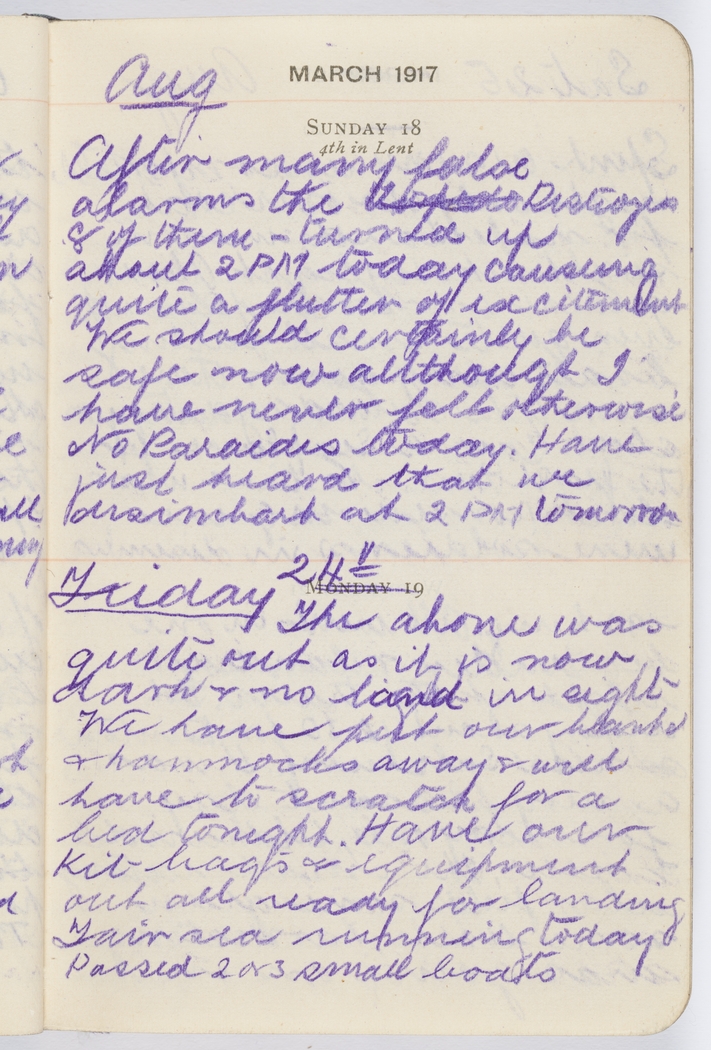 Aug
MARCH 1917
SUNDAY 18
4th in Lent
After many false
alarms the Torpedo Destroyes
8 of them - turned up
about 2 PM today causeing
quite a flutter of excitement
We should certainly be
safe now allthough I
have never felt otherwise
No Paraides today. Have
just heard that we
Desimbark at 2 PM tomorrow
Friday 24"
MONDAY 19
The above was
quite out as it is now
dark & no land in sight
We have put our blankets
& hammocks away & will
have to scratch for a
bed tonight. Have our
Kit bags & equipment
out all ready for landing
Fair sea running today
Passed 2 or 3 small boats